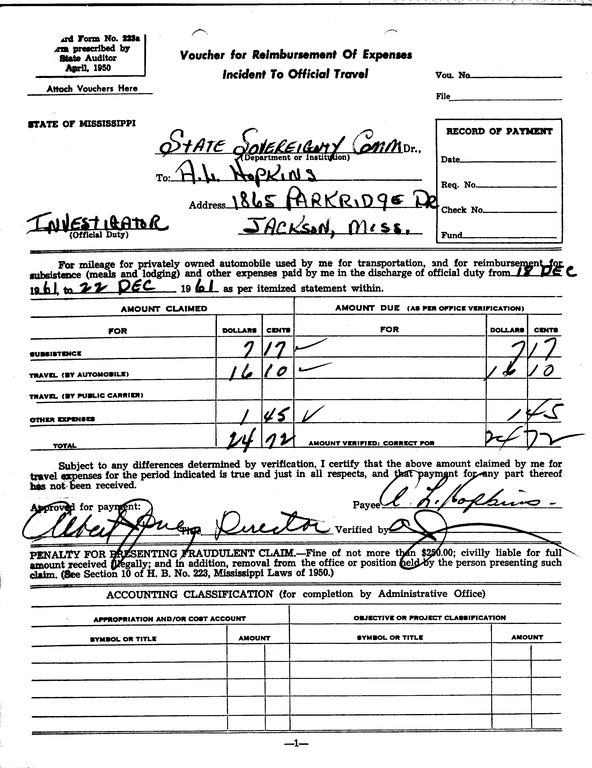 rd Form No. 223a
rm prescribed by
State Auditor
April, 1950
Attach Vouchers Here
Voucher for Reimbursement Of Expenses
Incident To Official Travel
Vou. No.
File
STATE OF MISSISSIPPI
STATE SOVEREIGNTY COMM Dr.,
(Department or Institution)
To: A.L. HOPKINS
Address 1865 PARKRIDGE DR
JACKSON, MISS.
INVESTIGATOR
(Official Duty)
RECORD OF PAYMENT
Date
Req. No.
Check No.
Fund
For mileage for privately owned automobile used by me for transportation, and for reimbursement for
subsistence (meals and lodging) and other expenses paid by me in the discharge of official duty from 18 DEC
1961, to 22 DEC 1961 as per itemized statement within.
AMOUNT CLAIMED AMOUNT DUE (AS PER OFFICE VERIFICATION)
FOR DOLLARS CENTS FOR DOLLARS CENTS
SUBSISTENCE 7 17 ✓ 7 17
TRAVEL (BY AUTOMOBILE) 16 10 ✓ 16 10
TRAVEL (BY PUBLIC CARRIER)
OTHER EXPENSES 1 45 ✓ 1 45
TOTAL 24 72 AMOUNT VERIFIED: CORRECT FOR 24 72
Subject to any differences determined by verification, I certify that the above amount claimed by me for
travel expenses for the period indicated is true and just in all respects, and that payment for any part thereof
has not been received.
Approved for payment: Payee A. L. Hopkins
Albert Jones Title Director Verified by
PENALTY FOR PRESENTING FRAUDULENT CLAIM.—Fine of not more than $250.00; civilly liable for full
amount received illegally; and in addition, removal from the office or position held by the person presenting such
claim. (See Section 10 of H. B. No. 223, Mississippi Laws of 1950.)
ACCOUNTING CLASSIFICATION (for completion by Administrative Office)
APPROPRIATION AND/OR COST ACCOUNT OBJECTIVE OR PROJECT CLASSIFICATION
SYMBOL OR TITLE AMOUNT SYMBOL OR TITLE AMOUNT
—1—